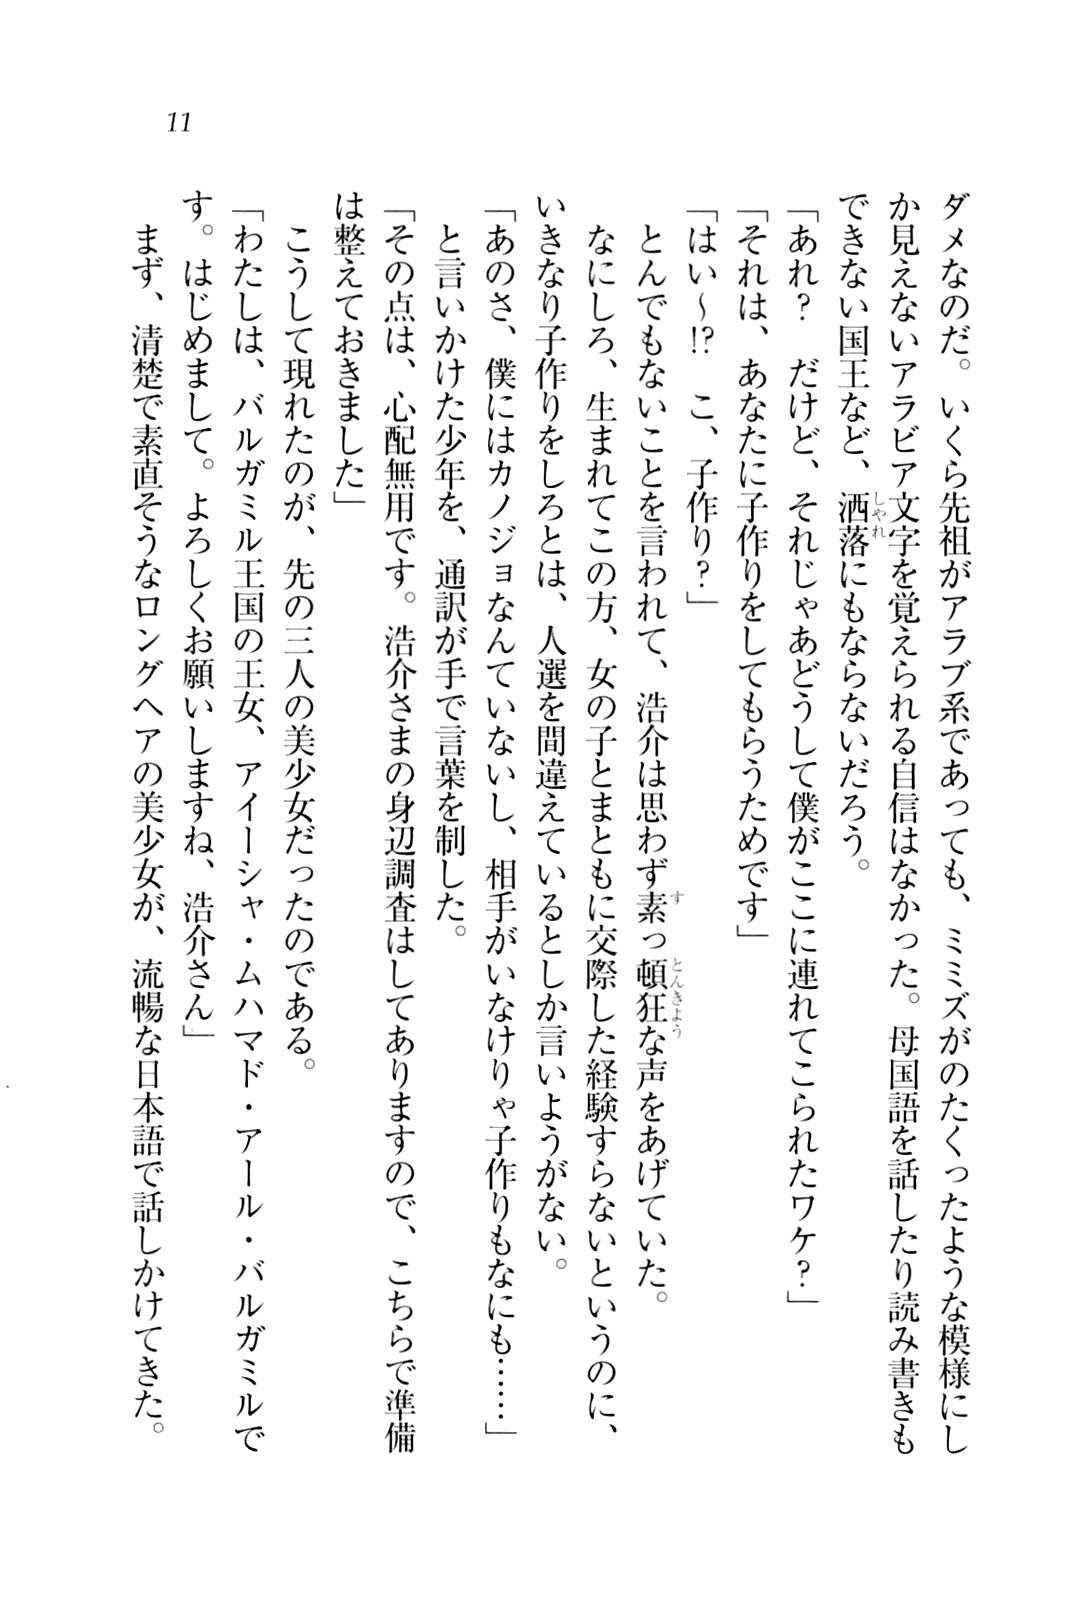 11
ダメなのだ。いくら先祖がアラブ系であっても、ミミズがのたくったような模様にし
か見えないアラビア文字を覚えられる自信はなかった。母国語を話したり読み書きも
できない国王など、洒落にもならないだろう。
「あれ？　だけど、それじゃあどうして僕がここに連れてこられたワケ？」
「それは、あなたに子作りをしてもらうためです」
「はい～!?　こ、子作り？」
　とんでもないことを言われて、浩介は思わず素っ頓狂な声をあげていた。
　なにしろ、生まれてこの方、女の子とまともに交際した経験すらないというのに、
いきなり子作りをしろとは、人選を間違えているとしか言いようがない。
「あのさ、僕にはカノジョなんていないし、相手がいなけりゃ子作りもなにも……」
　と言いかけた少年を、通訳が手で言葉を制した。
「その点は、心配無用です。浩介さまの身辺調査はしてありますので、こちらで準備
は整えておきました」
　こうして現れたのが、先の三人の美少女だったのである。
「わたしは、バルガミル王国の王女、アイーシャ・ムハマド・アール・バルガミルで
す。はじめまして。よろしくお願いしますね、浩介さん」
　まず、清楚で素直そうなロングヘアの美少女が、流暢な日本語で話しかけてきた。